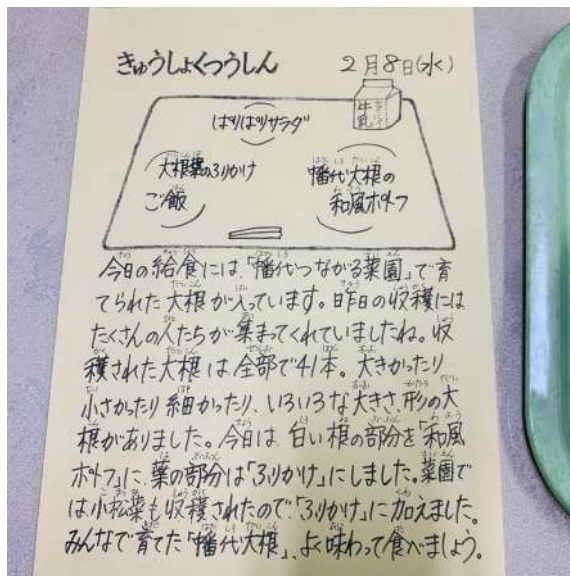 きゅうしょくつうしん 2月8日(水)
ぱりぱりサラダ
牛乳
大根葉のふりかけ
ご飯
幡代大根の
和風ポトフ
今日の給食には、「幡代つながる菜園」で育
てられた大根が入っています。昨日の収穫には
たくさんの人たちが集まってくれていましたね。収
穫された大根は全部で41本。大きかったり
小さかったり細かったり、いろいろな大きさ、形の大
根がありました。今日は、白い根の部分を「和風
ポトフ」に、葉の部分は「ふりかけ」にしました。菜園で
は小松菜も収穫されたので、「ふりかけ」に加えました。
みんなで育てた「幡代大根」、よく味わって食べましょう。